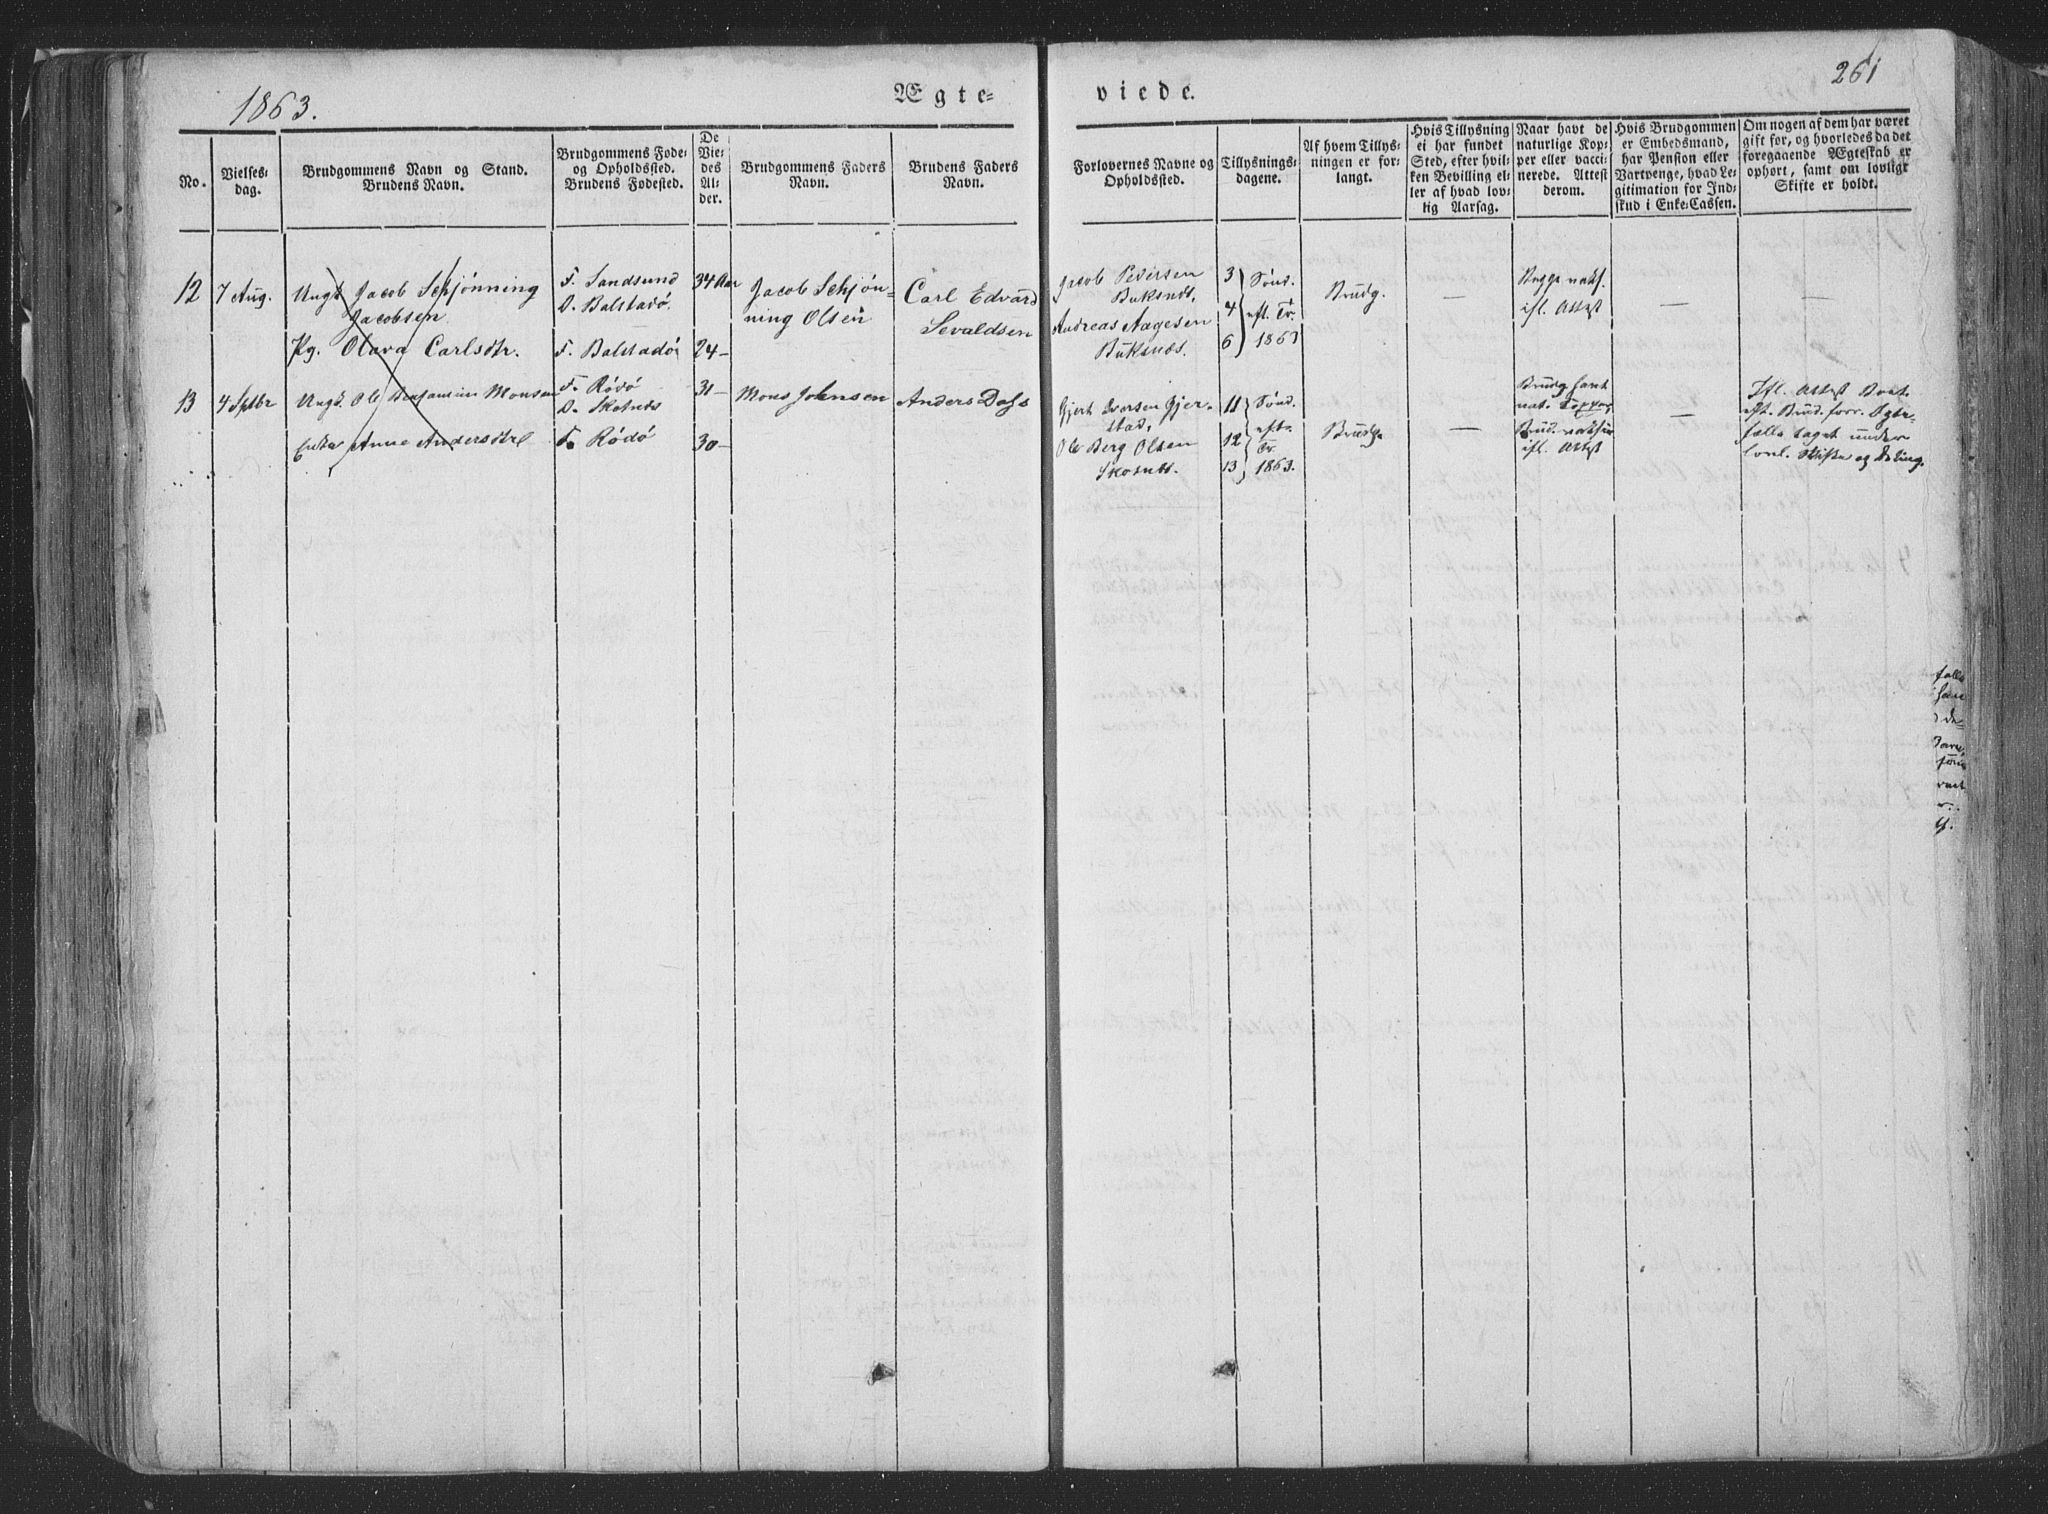 1863.
Ægte=
viede.
261
No.
Vielses-
dag.
Brudgommens Navn og Stand.
Brudens Navn.
Brudgommens Føde-
og Opholdssted.
Brudens Fødested.
De
Vie-
des
Al-
der.
Brudgommens Faders
Navn.
Brudens Faders
Navn.
Forlovernes Navne og
Opholdssted.
Tillysnings-
dagene.
Af hvem Tillys-
ningen er for-
langt.
Hvis Tillysning
ei har fundet
Sted, efter hvil-
ken Bevilling el-
ler af hvad lov-
lig Aarsag.
Naar havt de
naturlige Kop-
per eller vacci-
nerede. Attest
derom.
Hvis Brudgommen
er Embedsmand,
har Pension eller
Vartpenge, hvad Le-
gitimation for Ind-
skud i Enke-Cassen.
Om nogen af dem har været
gift før, og hvorledes da det
foregaaende Ægteskab er
ophørt, samt om lovligt
Skifte er holdt.
12
7 Aug.
Ungk. Jacob Schjønning
Jacobsen
Pg. Olava Carlsdtr.
F. Sandsund
O. Balstadø.
F. Balstadø
34 Aar
24 –
Jacob Schjøn-
ning Olsen
Carl Edvard
Sevaldsen
Jacob Pedersen
Buksnæs,
Andreas Aagesen
Buksnæs.
3
4
6
Sønd.
eft. Tr.
1863
Brudg.
—
Begge vaks.
ifl. Attest
—
13
4 Septbr
Ungk. Ole Benjamin Monsen
Enke Anne Andersdtr
F. Rødø
O. Skotnæs
F. Rødø
31 –
30 –
Mons Johnsen
Anders Dass
Gjert Iversen Gjer-
stad,
Ole Berg Olsen
Skotnæs.
11
12
13
Sønd.
eft.
Tr.
1863.
Brudg.
—
Brudg. havt
nat. Kopper
Brud. vaksin
ifl. Attest
—
Ifl. Attest
eft. Brud. forr. Ægte-
fælle taget under
lovl. Skifte og Deling.